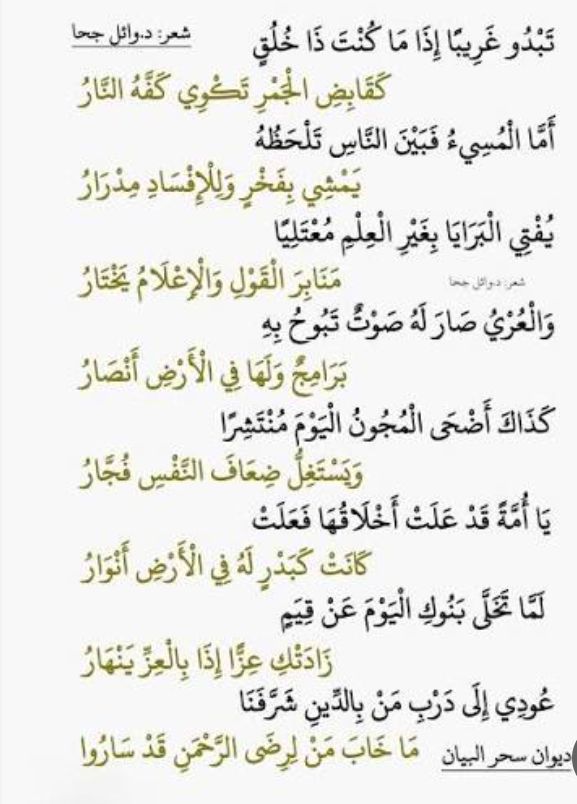 شعر: د.وائل جحا
تَبْدُو غَرِيبًا إِذَا مَا كُنْتَ ذَا خُلُقٍ
كَقَابِضِ الْجَمْرِ تَكْوِي كَفَّهُ النَّارُ
أَمَّا الْمُسِيءُ فَبَيْنَ النَّاسِ تَلْحَظُهُ
يَمْشِي بِفَخْرٍ وَلِلْإِفْسَادِ مِدْرَارُ
يُفْتِي الْبَرَايَا بِغَيْرِ الْعِلْمِ مُعْتَلِيًا
مَنَابِرَ الْقَوْلِ وَالْإِعْلَامُ يَخْتَارُ
شعر: د.وائل جحا
وَالْعُرْيُ صَارَ لَهُ صَوْتٌ تَبُوحُ بِهِ
بَرَامِجٌ وَلَهَا فِي الْأَرْضِ أَنْصَارُ
كَذَاكَ أَضْحَى الْمُجُونُ الْيَوْمَ مُنْتَشِرًا
وَيَسْتَغِلُّ ضِعَافَ النَّفْسِ فُجَّارُ
يَا أُمَّةً قَدْ عَلَتْ أَخْلَاقُهَا فَعَلَتْ
كَانَتْ كَبَدْرٍ لَهُ فِي الْأَرْضِ أَنْوَارُ
لَمَّا تَخَلَّى بَنُوكِ الْيَوْمَ عَنْ قِيَمٍ
زَادَتْكِ عِزًّا إِذَا بِالْعِزِّ يَنْهَارُ
عُودِي إِلَى دَرْبِ مَنْ بِالدِّينِ شَرَّفَنَا
مَا خَابَ مَنْ لِرِضَى الرَّحْمَنِ قَدْ سَارُوا
ديوان سحر البيان